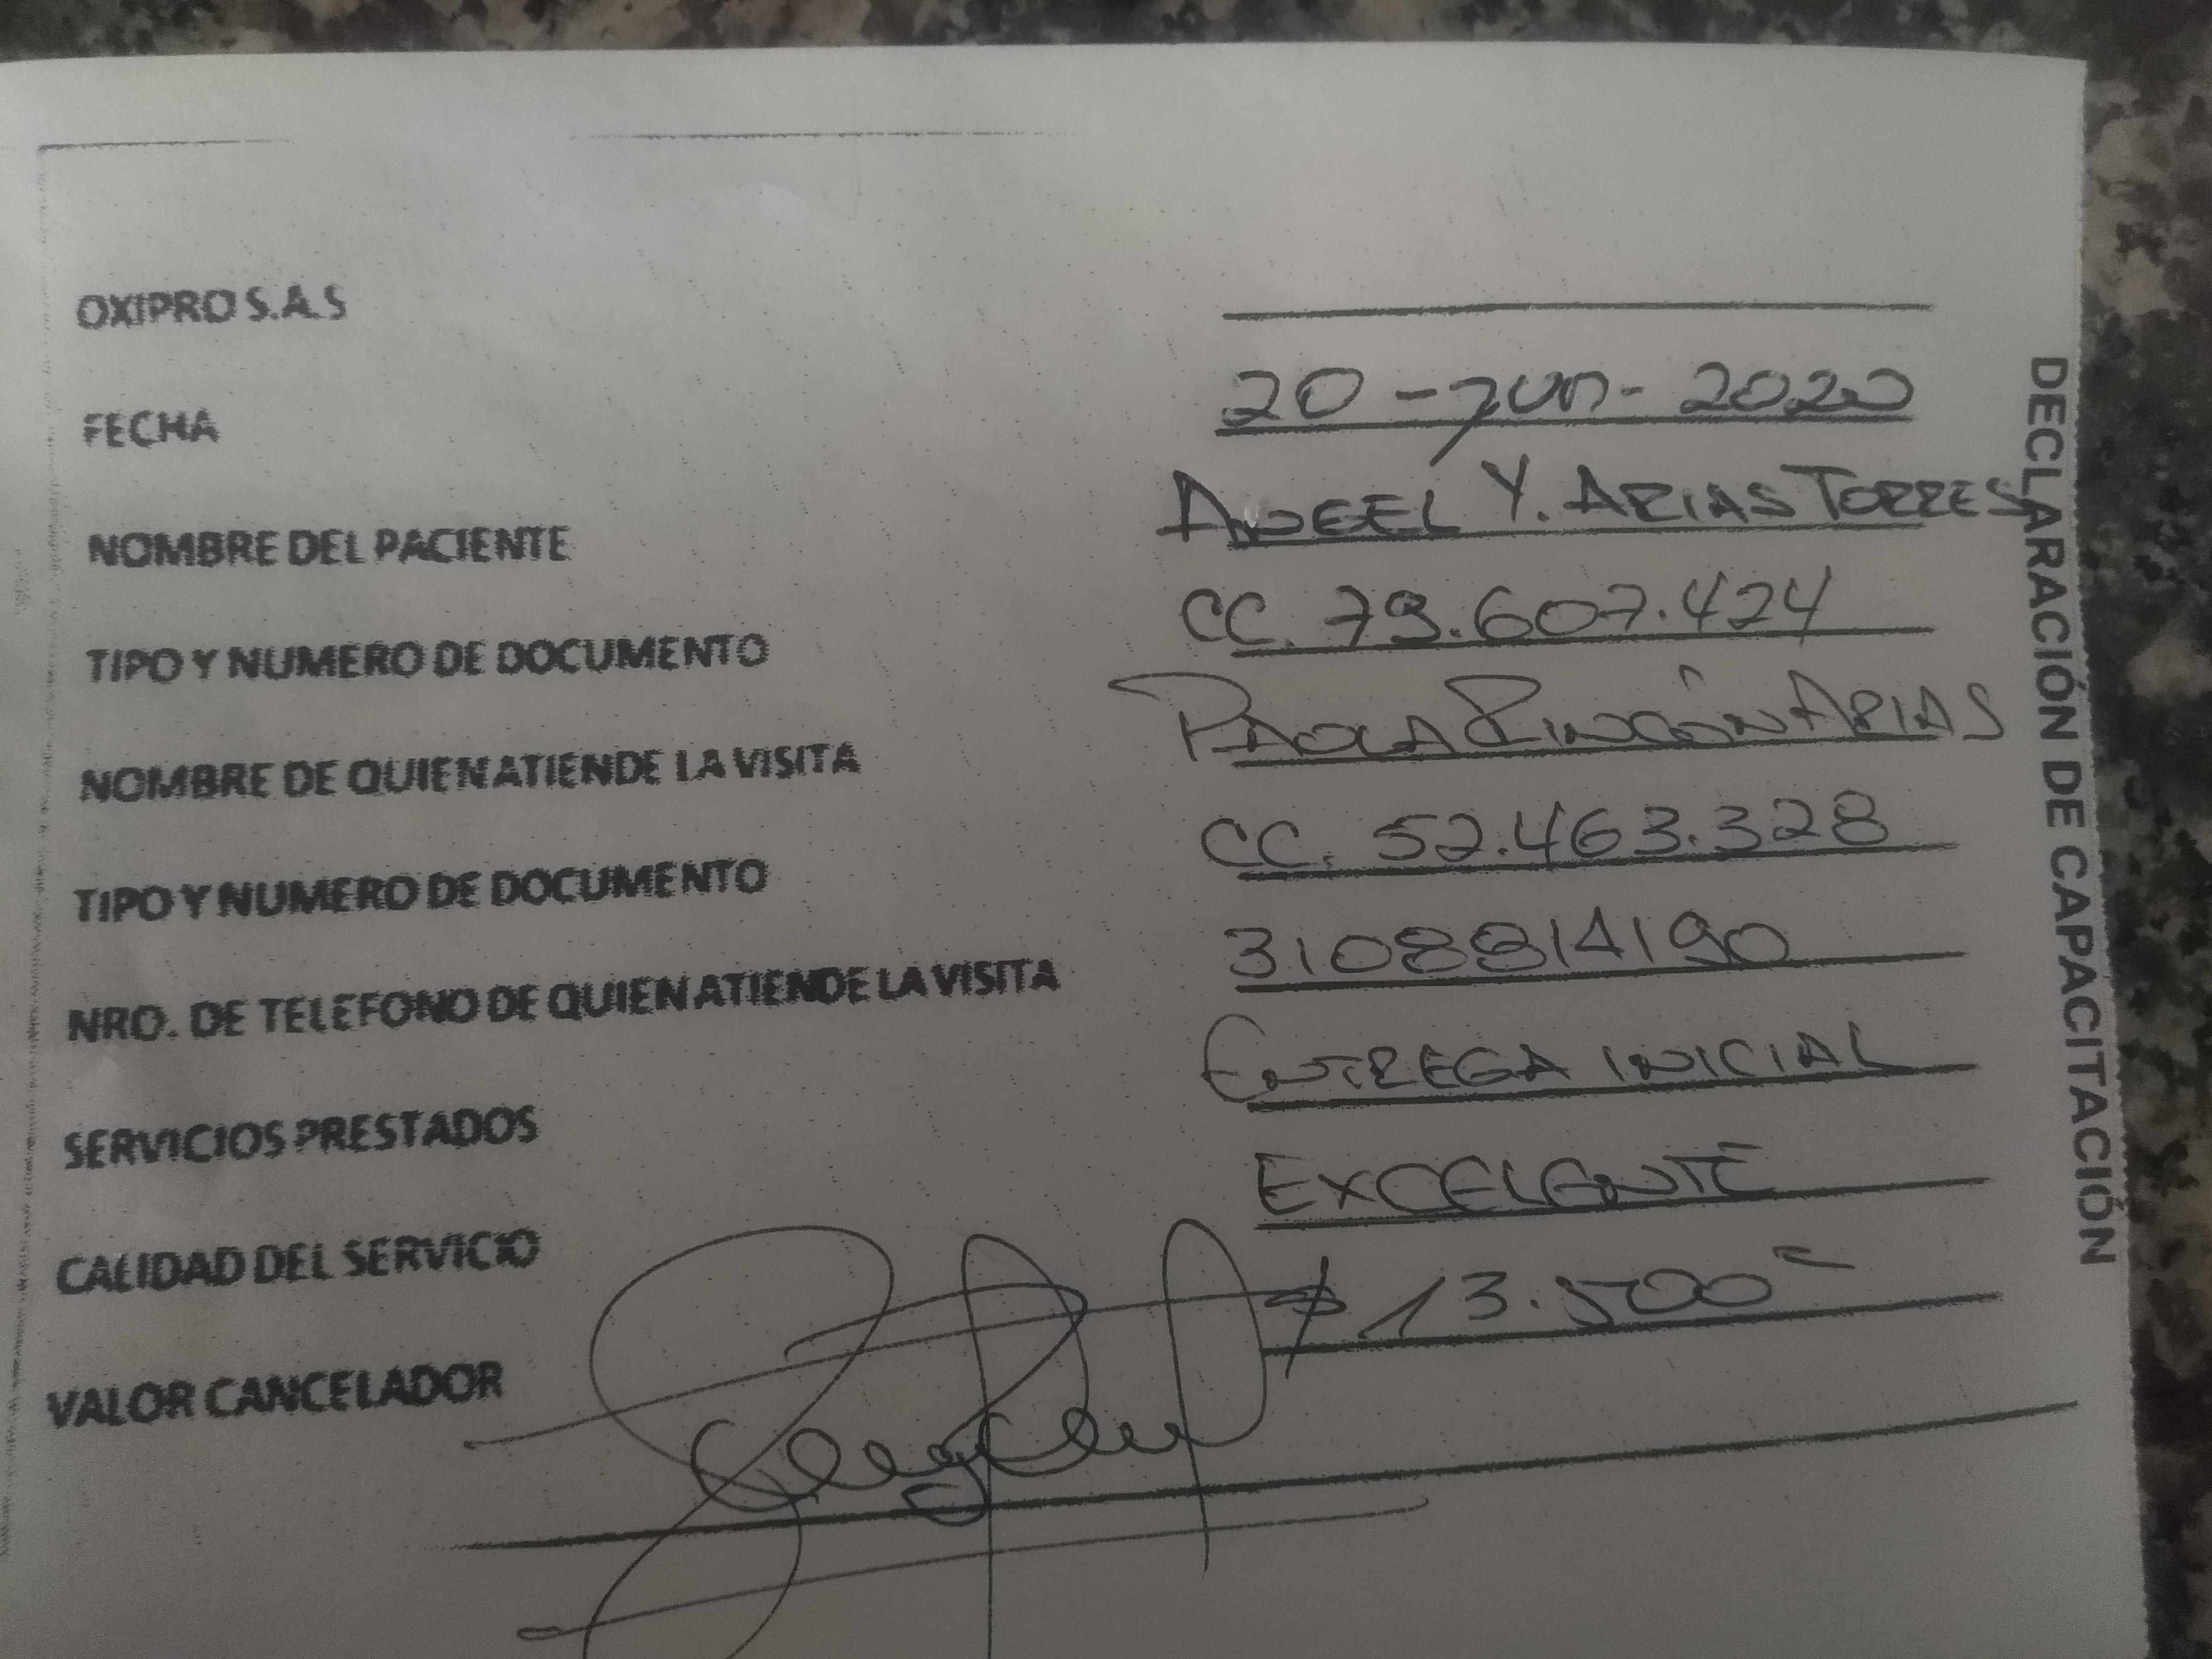 OXIPRO S.A.S
FECHA 20-Jun-2020
NOMBRE DEL PACIENTE ANGEL Y. ARIAS TORRES
TIPO Y NUMERO DE DOCUMENTO CC. 79.607.424
NOMBRE DE QUIEN ATIENDE LA VISITA PAOLA RINCÓN ARIAS
TIPO Y NUMERO DE DOCUMENTO CC. 52.463.328
NRO. DE TELEFONO DE QUIEN ATIENDE LA VISITA 3108814190
SERVICIOS PRESTADOS ENTREGA INICIAL
CALIDAD DEL SERVICIO EXCELENTE
VALOR CANCELADOR $13.500
DECLARACIÓN DE CAPACITACIÓN